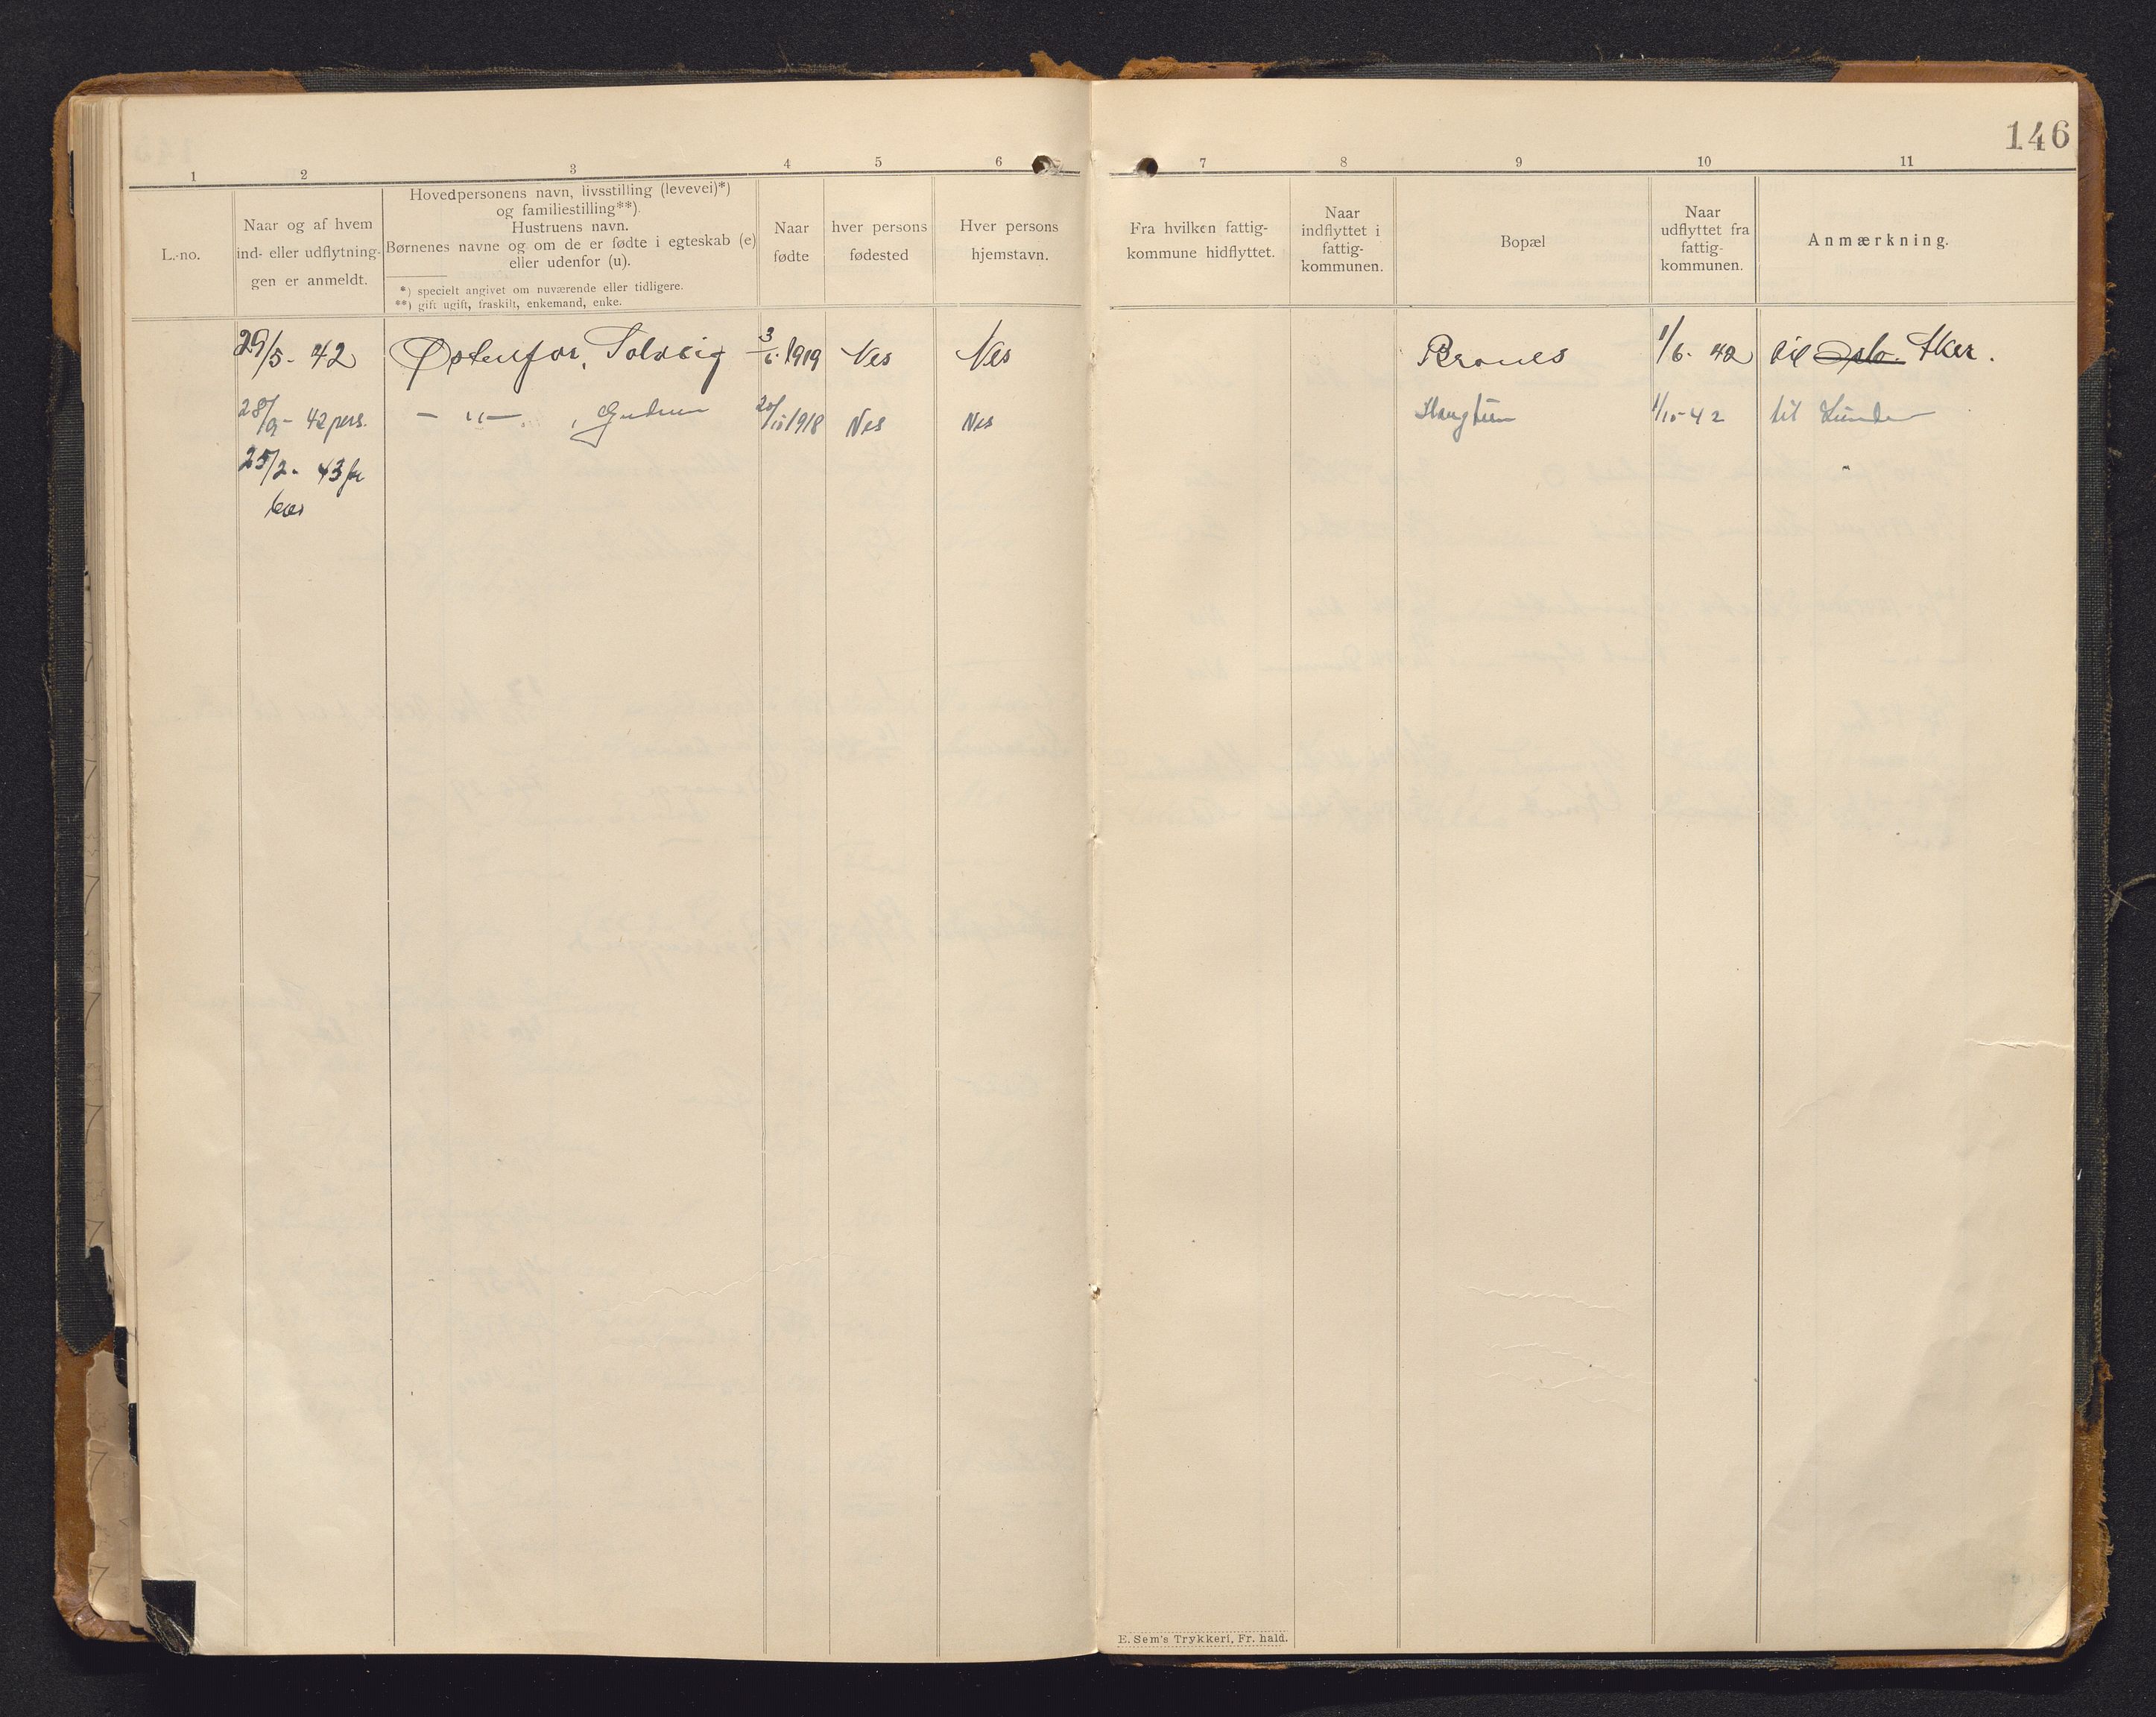 146
1 2 3 4 5 6 7 8 9 10 11
L.-no.
Naar og af hvem
ind- eller udflytnin-
gen er anmeldt.
Hovedpersonens navn, livsstilling (levevei)*)
og familiestilling**).
Hustruens navn.
Børnenes navne og om de er fødte i egteskab (e)
eller udenfor (u).
*) specielt angivet om nuværende eller tidligere.
**) gift ugift, fraskilt, enkemand, enke.
Naar
fødte
hver persons
fødested
Hver persons
hjemstavn.
Fra hvilken fattig-
kommune hidflyttet.
Naar
indflyttet i
fattig-
kommunen.
Bopæl
Naar
udflyttet fra
fattig-
kommunen.
Anmærkning.
29/5- 42 Østenfor, Solveig 3/6-1919 Nes Nes 1/6- 42 til Oslo. Aker.
28/9- 42 pers. — " — , Gudrun 1918 Nes Nes 1/10-42 til Lunder
25/2- 43
E. Sem's Trykkeri, Fr. hald.